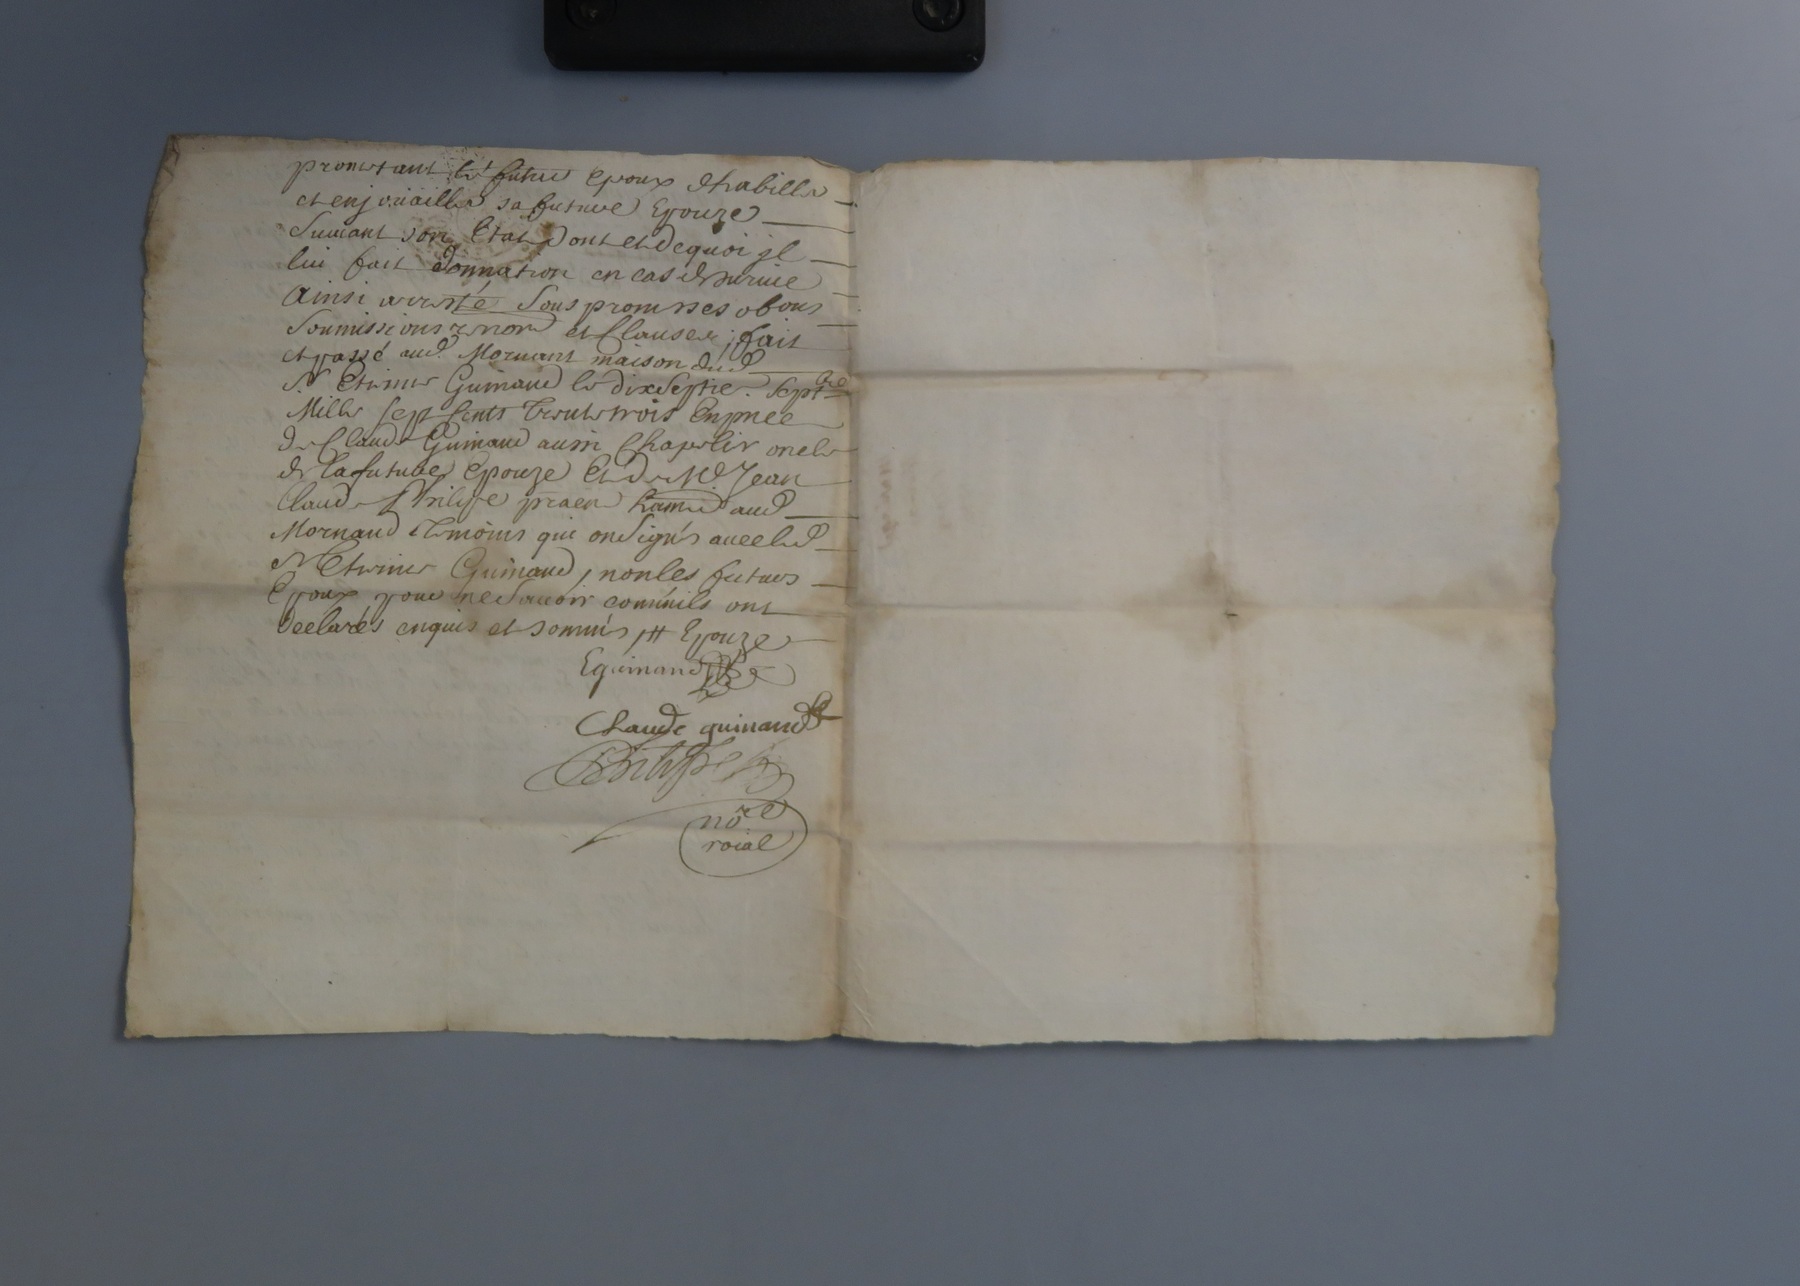 promettant le futur epoux d'habiller
et enjouailler sa future Epouze
Suivant son Etat Dont et dequoi jl
lui fait donnation en cas de survie
Ainsi arresté Sous promesses obons
Soumissions renon et Clauses, fait
et passé aud. Mornant maison dud
Sr Etienne Guinand le dix Septie. Septbre
Mille Sept Cents Trente trois En pnce
de Claude Guinand aussi Chapelir oncle
de la future Epouze Et de Me Jean
Claude Philipe aud
Mornand temoins qui on Signés avec led
Sr Etienne Guinand, non les futurs
Epoux pour ne Savoir comm'ils ont
declarés enquis et sommés /// Epouze
Eguinand
Claude guinand
Philippe
nore
roial